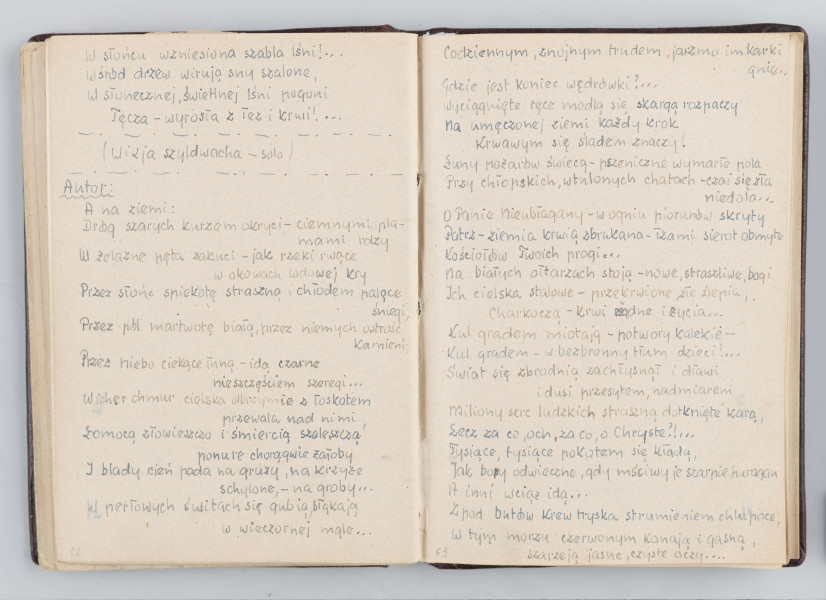 W słońcu wzniesiona szabla lśni!...
Wśród drzew wirują sny szalone,
W słonecznej, świetlnej lśni pogoni
Tęcza - wyrosła z łez i krwi!...
(Wizja szyldwacha - solo)
Autor:
A na ziemi:
Drogą szarych kurzem okryci - ciemnymi pla-
mami rdzy
W żelazne pęta zakuci - jak rzeki rwące
w okowach lodowej kry
Przez słońc spiekotę straszną i chłodem palące
śniegi,
Przez pól martwotę białą, przez niemych ostrość
kamieni,
Przez niebo ciekące - idą czarne
nieszczęściem szeregi...
Wicher chmur cielska olbrzymie z łoskotem
przewala nad nimi,
Łomocą złowieszczo i śmiercią szeleszczą
ponure chorągwie żałoby
I blady cień pada na gruzy, na krzyże
schylone, - na groby...
W perłowych świtach się gubią, błąkają
w wieczornej mgle...
62
Codziennym, znojnym trudem, jarzmo im karki
gnie...
Gdzie jest koniec wędrówki?...
Wyciągnięte ręce modlą się skargą rozpaczy
Na umęczonej ziemi każdy krok
Krwawym się śladem znaczy!
Łuny pożarów świecą - pszeniczne wymarłe pola
Przy chłopskich, wtulonych chatach - czai się zła
niedola...
O Panie Nieubłagany - w ogniu piorunów skryty
Patrz - ziemia krwią zbrukana - łzami sierot obmyte
Kościołów Twoich progi...
Na białych ołtarzach stoją - nowe, straszliwe, bogi
Ich cielska stalowe - przekrwione, złe ślepia,
Charkoczą - krwi żądne i życia...
Kul gradem miotają - potwory kalekie -
Kul gradem - w bezbronny tłum dzieci!...
Świat się zbrodnią zachłysnął i dławi
i dusi przesytem, nadmiarem
Miliony serc ludzkich straszną dotknięte karą,
Lecz za co, och, za co, o Chryste?!...
Tysiące, tysiące pokotem się kładą,
Jak bory odwieczne, gdy mściwy je szarpie huragan
A inni wciąż idą...
Z pod butów krew tryska strumieniem chlupoce,
W tym morzu czerwonym konają i gasną,
szarzeją jasne, czyste oczy....
63